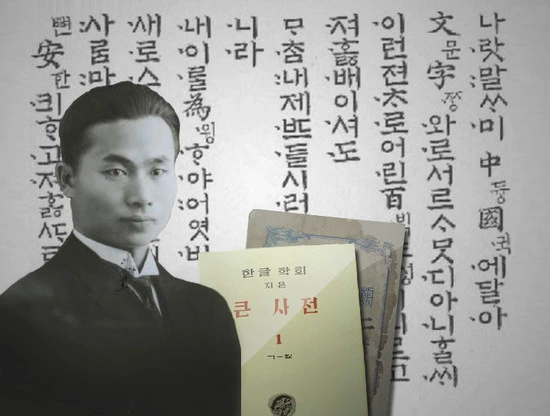 나랏말ᄊᆞ미中듕國귁에달아
文문字ᄍᆞᆼ와로서르ᄉᆞᄆᆞᆺ디아니ᄒᆞᆯᄊᆡ
이런젼ᄎᆞ로어린百
져ᄒᆞᇙ배이셔도
ᄆᆞᄎᆞᆷ내제ᄠᅳ들시러
니라
내이ᄅᆞᆯ為윙ᄒᆞ야어엿비
새로스
사ᄅᆞᆷ마
뼌安한킈ᄒᆞ고져ᄒᆞᇙ
한글 학회
지은
큰 사전
1